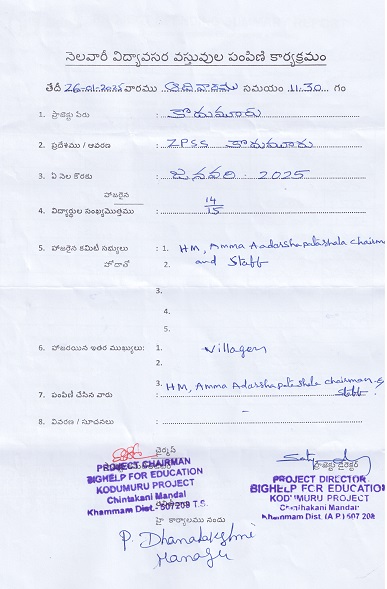 నెలవారీ విద్యావసర వస్తువుల పంపిణి కార్యక్రమం
తేదీ 26-01-2025 వారము ఆదివారము సమయం 11.30 గం
1. ప్రాజెక్టు పేరు : కొదుమూరు
2. ప్రదేశము / ఆవరణ : ZPSS కొదుమూరు
3. ఏ నెల కొరకు : జనవరి : 2025
హాజరైన
4. విద్యార్థుల సంఖ్య మొత్తము : 14/15
5. హాజరైన కమిటీ సభ్యులు : 1. HM, Amma Aadarsha patashala chairman
హోదాతో 2. and Staff
3.
4.
5.
6. హాజరయిన ఇతర ముఖ్యులు: 1. Villagers
2.
3. HM, Amma Adarsha patashala chairman &
7. పంపిణి చేసిన వారు : Staff.
8. వివరణ / సూచనలు : –
చైర్మన్
ప్రాజెక్టు డైరెక్టర్
PROJECT CHAIRMAN
BIGHELP FOR EDUCATION
KODUMURU PROJECT
Chintakani Mandal
Khammam Dist.- 507208 T.S.
PROJECT DIRECTOR
BIGHELP FOR EDUCATION
KODUMURU PROJECT
Chintakani Mandal
Khammam Dist. (A P) 507 208
కార్యాలము నందు
P. Dhanalakshmi
Manager